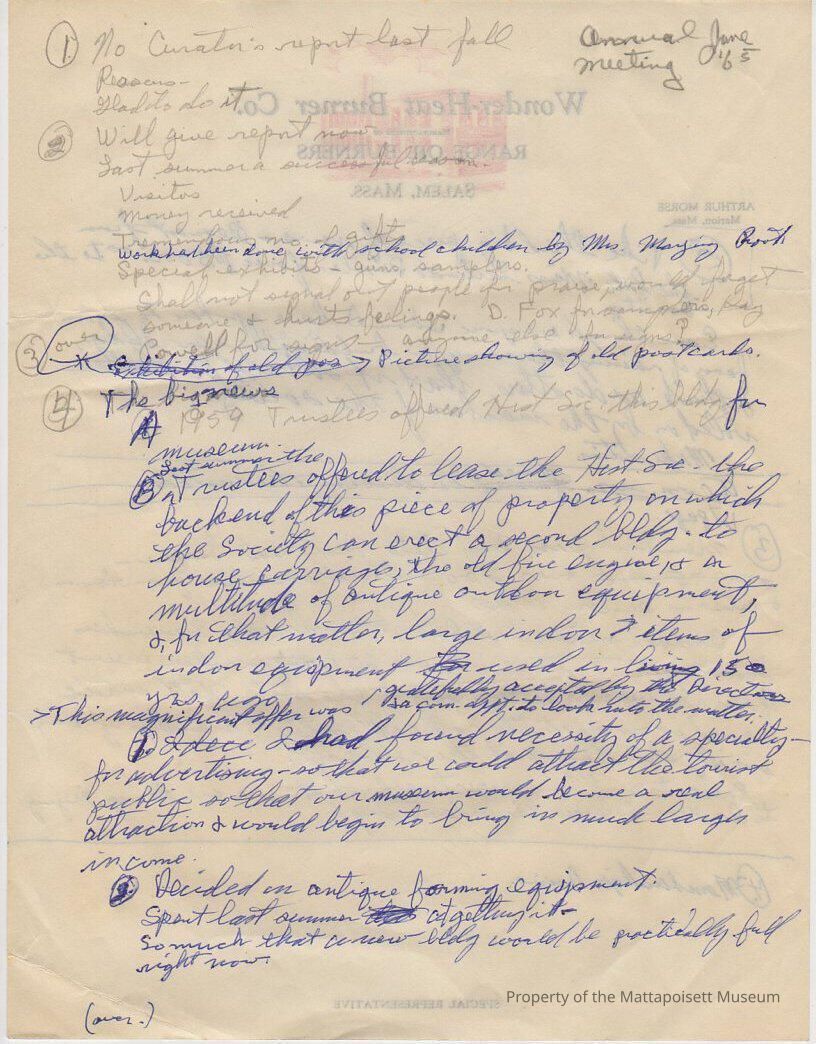 ① No Curator's report last fall
Annual June
meeting '65
Reasons-
Glad to do it
② Will give report now
Last summer a successful season.
Visitos
Money received
Tremendous no. of gifts
work has been done with school children by Mrs. Marjory
Special exhibits - guns, samplers.
Shall not signal out people for praise, would forget
someone, & hurts feelings. D. Fox for samplers, Ray
Powell for signs - anyone else for signs?
③ over * Exhibition of old pos > Picture showing of old postcards.
④ The big news
A 1959 Trustees offered Hist Soc. this bldg for
museum.
B Last summer the
Trustees offered to lease the Hist Soc. the
back end of this piece of property on which
the Society can erect a second bldg. to
house carriages, the old fire engine, & a
multitude of antique outdoor equipment,
&, for that matter, large indoor items of
indoor equipment used in living 150
yrs. ago
>This magnificent offer was gratefully accepted by the Directors
& a com. appt. to look into the matter.
1 I had found necessity of a specialty -
for advertising - so that we could attract the tourist
public so that our museum would become a real
attraction & would begin to bring in much larger
income.
2 Decided on antique farming equipment.
Spent last summer at getting it -
So much that a new bldg would be practically full
right now.
(over.)
Wonder-Heat Burner Co.
RANGE OIL BURNERS
SALEM, MASS.
ARTHUR MORSE
Marion, Mass.
SPECIAL REPRESENTATIVE
Property of the Mattapoisett Museum